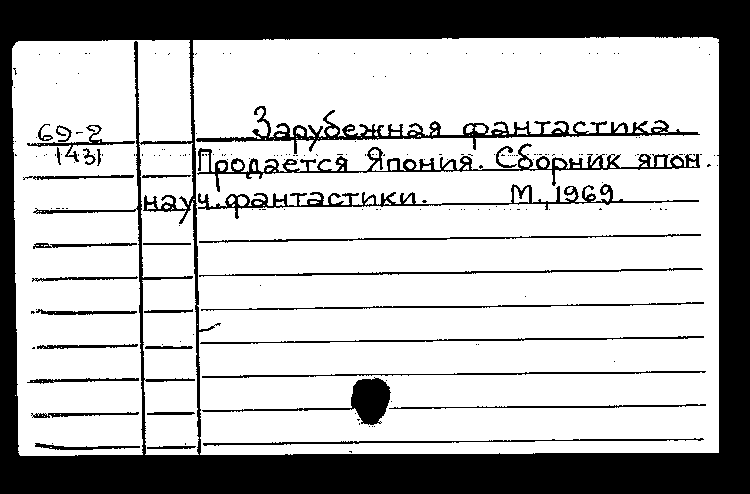 69-2
1431
Зарубежная фантастика.
Продается Япония. Сборник япон.
науч. фантастики. М., 1969.